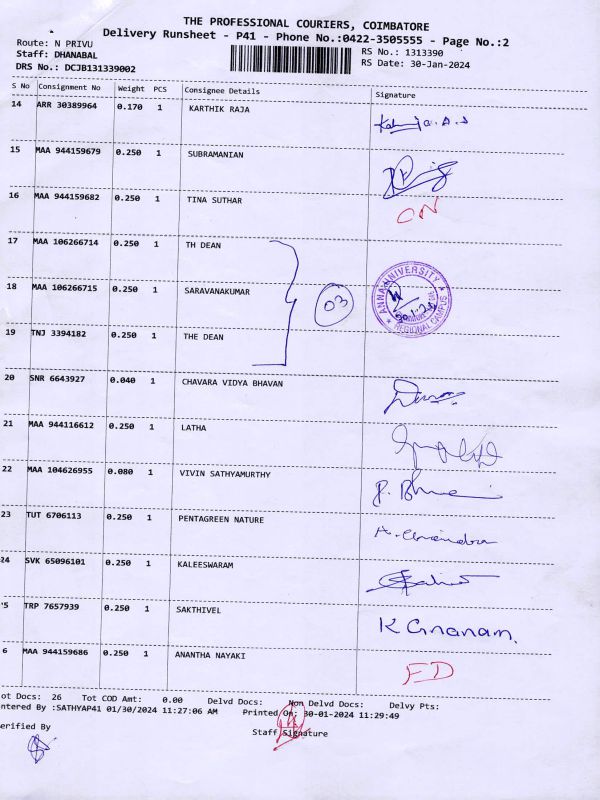 THE PROFESSIONAL COURIERS, COIMBATORE
Delivery Runsheet - P41 - Phone No.:0422-3505555 - Page No.:2
Route: N PRIVU
RS No.: 1313390
Staff: DHANABAL
RS Date: 30-Jan-2024
DRS No.: DCJB131339002
S No Consignment No Weight PCS Consignee Details Signature
14 ARR 30389964 0.170 1 KARTHIK RAJA
15 MAA 944159679 0.250 1 SUBRAMANIAN
16 MAA 944159682 0.250 1 TINA SUTHAR CN
17 MAA 106266714 0.250 1 TH DEAN
18 MAA 106266715 0.250 1 SARAVANAKUMAR 03 ANNA UNIVERSITY REGIONAL CAMPUS
19 TNJ 3394182 0.250 1 THE DEAN
20 SNR 6643927 0.040 1 CHAVARA VIDYA BHAVAN
21 MAA 944116612 0.250 1 LATHA
22 MAA 104626955 0.080 1 VIVIN SATHYAMURTHY
23 TUT 6706113 0.250 1 PENTAGREEN NATURE A. Chandra
24 SVK 65096101 0.250 1 KALEESWARAM
5 TRP 7657939 0.250 1 SAKTHIVEL K Gnanam.
6 MAA 944159686 0.250 1 ANANTHA NAYAKI FD
ot Docs: 26 Tot COD Amt: 0.00 Delvd Docs: Non Delvd Docs: Delvy Pts:
ntered By :SATHYAP41 01/30/2024 11:27:06 AM Printed On: 30-01-2024 11:29:49
erified By
Staff Signature